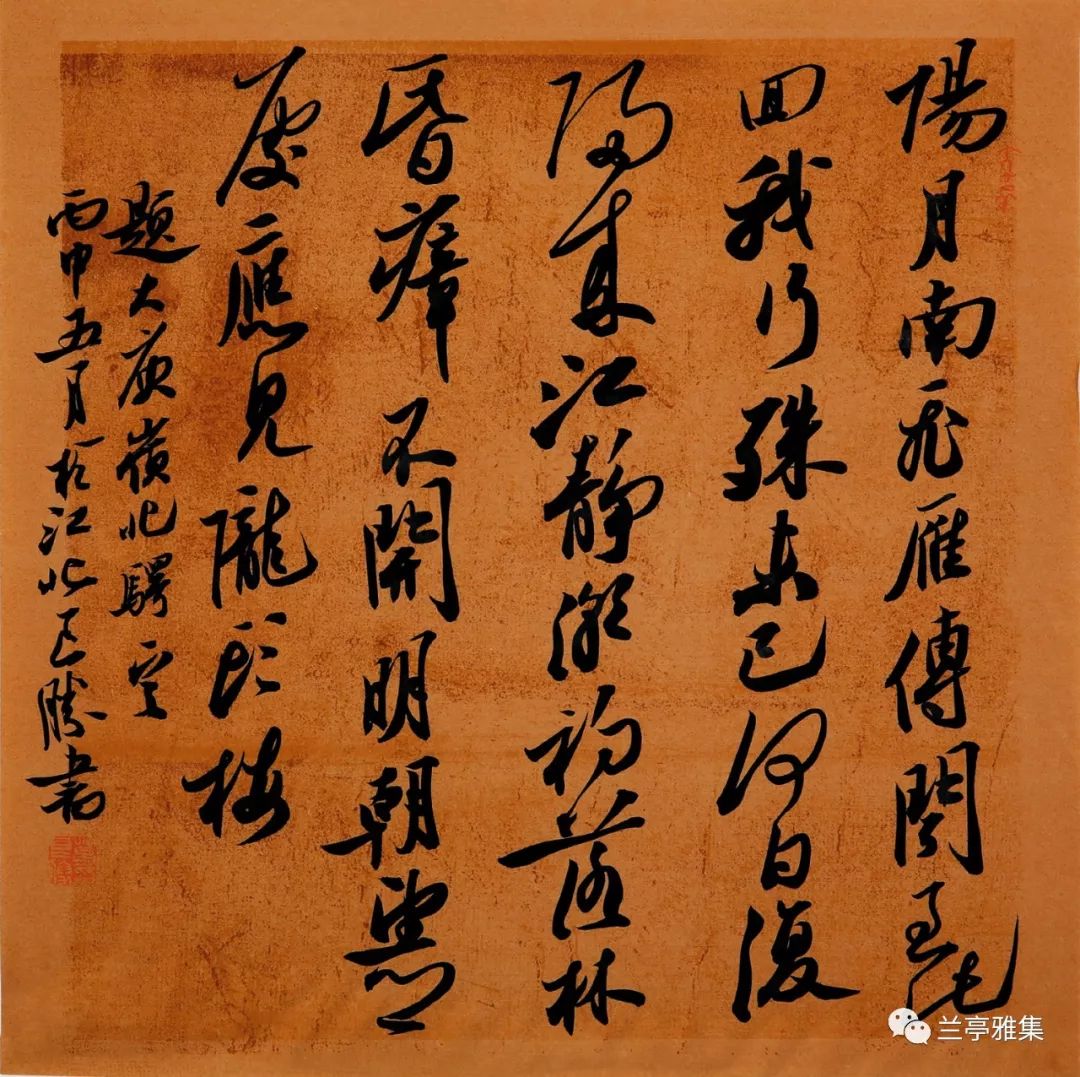 陽月南飛雁傳聞至此
回我行殊未已何日復
歸來江静潮初落林
昏瘴不開明朝望
處應見隴頭梅
題大庾嶺北驛
丙申五月於江北勝書
兰亭雅集